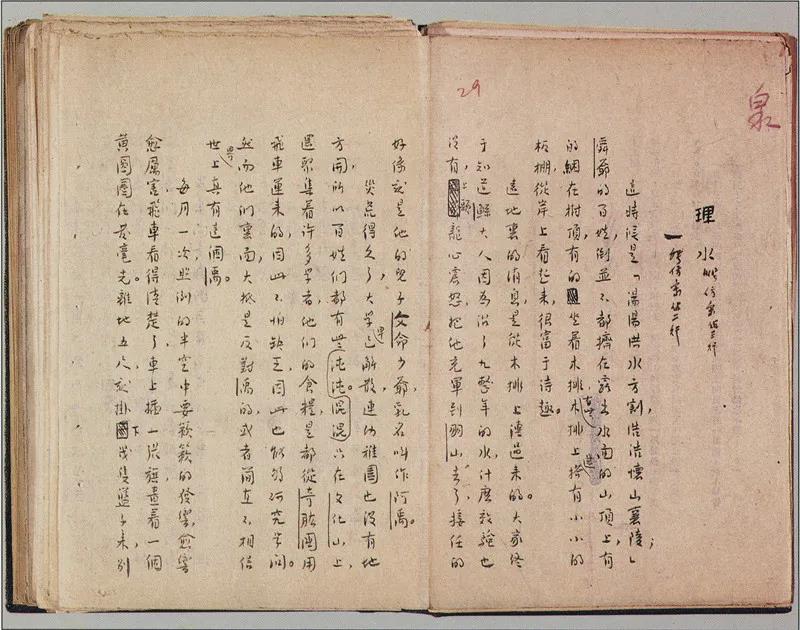 泉
理水
一
這時候是「湯湯洪水方割,浩浩懷山襄陵」;
舜爺的百姓,倒並不都擠在露出水面的山頂上,有
的綑在樹頂,有的坐着木排,有些木排上搭有小小的
板棚,從岸上看起來,很富于詩趣。
遠地裏的消息,是從木排上傳過來的。大家終
于知道鯀大人因為治了九整年的水,什麽效驗也
沒有,上頭龍心震怒,把他充軍到羽山去了,接任的
29
好像就是他的兒子文命少爺,乳名叫作阿禹。
災荒得久了,大學早已解散,連幼稚園也沒有地
方開,所以百姓們都有些沌沌混混。只在文化山上,
還聚集着許多學者,他們的食糧,是都從奇肱國用
飛車運來的,因此不怕缺乏,因此也能夠研究學問。
然而他們裏面,大抵是反對禹的,或者簡直不相信
世上真有這個禹。
每月一次,照例的半空中要簌簌的發響,愈響
愈厲害,飛車看得清楚了,車上插一張旗,畫着一個
黃圓圈在發毫光。離地五尺,就掛下幾隻籃子來,別